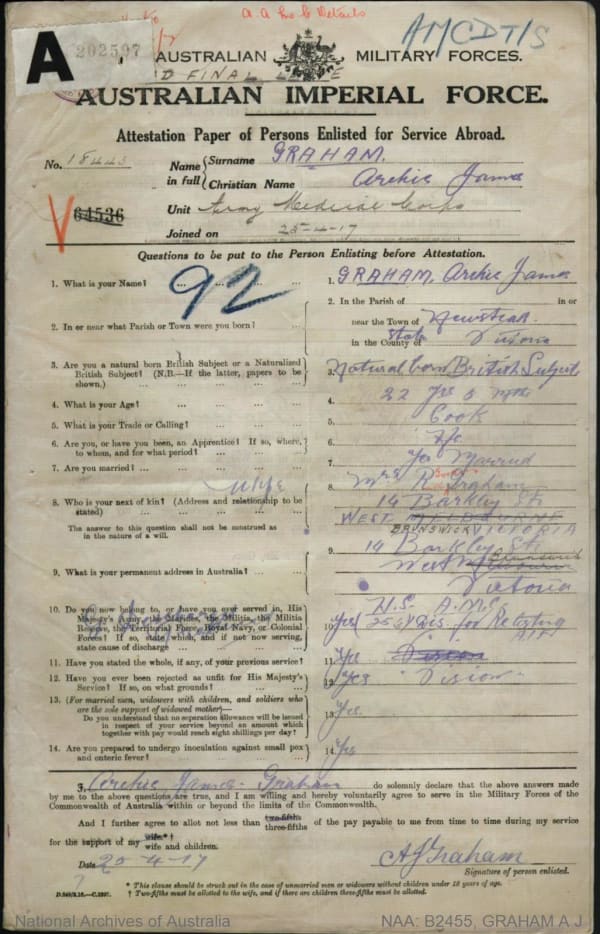 a.a. & C Details
A
202597
AMCDT/S
AUSTRALIAN MILITARY FORCES.
FINAL
AUSTRALIAN IMPERIAL FORCE.
Attestation Paper of Persons Enlisted for Service Abroad.
No. 18443
Name in full { Surname GRAHAM.
Christian Name Archie James
Unit Army Medical Corps
V 64536
Joined on 25-4-17
Questions to be put to the Person Enlisting before Attestation.
92
1. What is your Name? ... 1. GRAHAM, Archie James
2. In or near what Parish or Town were you born? ... 2. In the Parish of in or
near the Town of Newstead
in the County of State Victoria
3. Are you a natural born British Subject or a Naturalized
British Subject? (N.B.—If the latter, papers to be
shown.) ... 3. Natural born British Subject
4. What is your Age? ... 4. 22 yrs mths
5. What is your Trade or Calling? ... 5. Cook
6. Are you, or have you been, an Apprentice? If so, where,
to whom, and for what period? ... 6. No
7. Are you married? ... 7. Yes Married
wife
8. Who is your next of kin? (Address and relationship to be
stated) ... 8. Mrs R Graham
14 Barkly St
WEST MELBOURNE
BRUNSWICK VICTORIA
The answer to this question shall not be construed as
in the nature of a will.
9. What is your permanent address in Australia? ... 9. 14 Barkly St
West Melbourne Brunswick
Victoria
10. Do you now belong to, or have you ever served in, His
Majesty's Army, the Marines, the Militia, the Militia
Reserve, the Territorial Force, Royal Navy, or Colonial
Forces? If so, state which, and if not now serving,
state cause of discharge ... 10. Yes H.S. A.M.C.
Dis. for Enlisting
AIF
11. Have you stated the whole, if any, of your previous service? 11. Yes Vision
12. Have you ever been rejected as unfit for His Majesty's
Service? If so, on what grounds? ... 12. Yes "Vision"
13. (For married men, widowers with children, and soldiers who
are the sole support of widowed mother)—
Do you understand that no separation allowance will be issued
in respect of your service beyond an amount which
together with pay would reach eight shillings per day? 13. Yes.
14. Are you prepared to undergo inoculation against small pox
and enteric fever? ... 14. Yes
I, Archie James Graham do solemnly declare that the above answers made
by me to the above questions are true, and I am willing and hereby voluntarily agree to serve in the Military Forces of the
Commonwealth of Australia within or beyond the limits of the Commonwealth.
And I further agree to allot not less than two-fifths three-fifths of the pay payable to me from time to time during my service
for the support of my wife*† wife and children.
Date 25-4-17
A J Graham
Signature of person enlisted.
* This clause should be struck out in the case of unmarried men or widowers without children under 18 years of age.
† Two-fifths must be allotted to the wife, and if there are children three-fifths must be allotted.
National Archives of Australia
NAA: B2455, GRAHAM A J